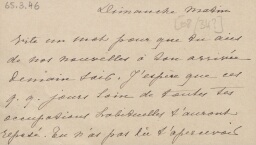 65.3.46
Dimanche Matin
Vite un mot pour que tu aies
de nos nouvelles à ton arrivée
demain soir. J'espère que ces
q.q. jours loin de toutes tes
occupations habituelles t'auront
reposé. Tu n'as pas dû t'apercevoir